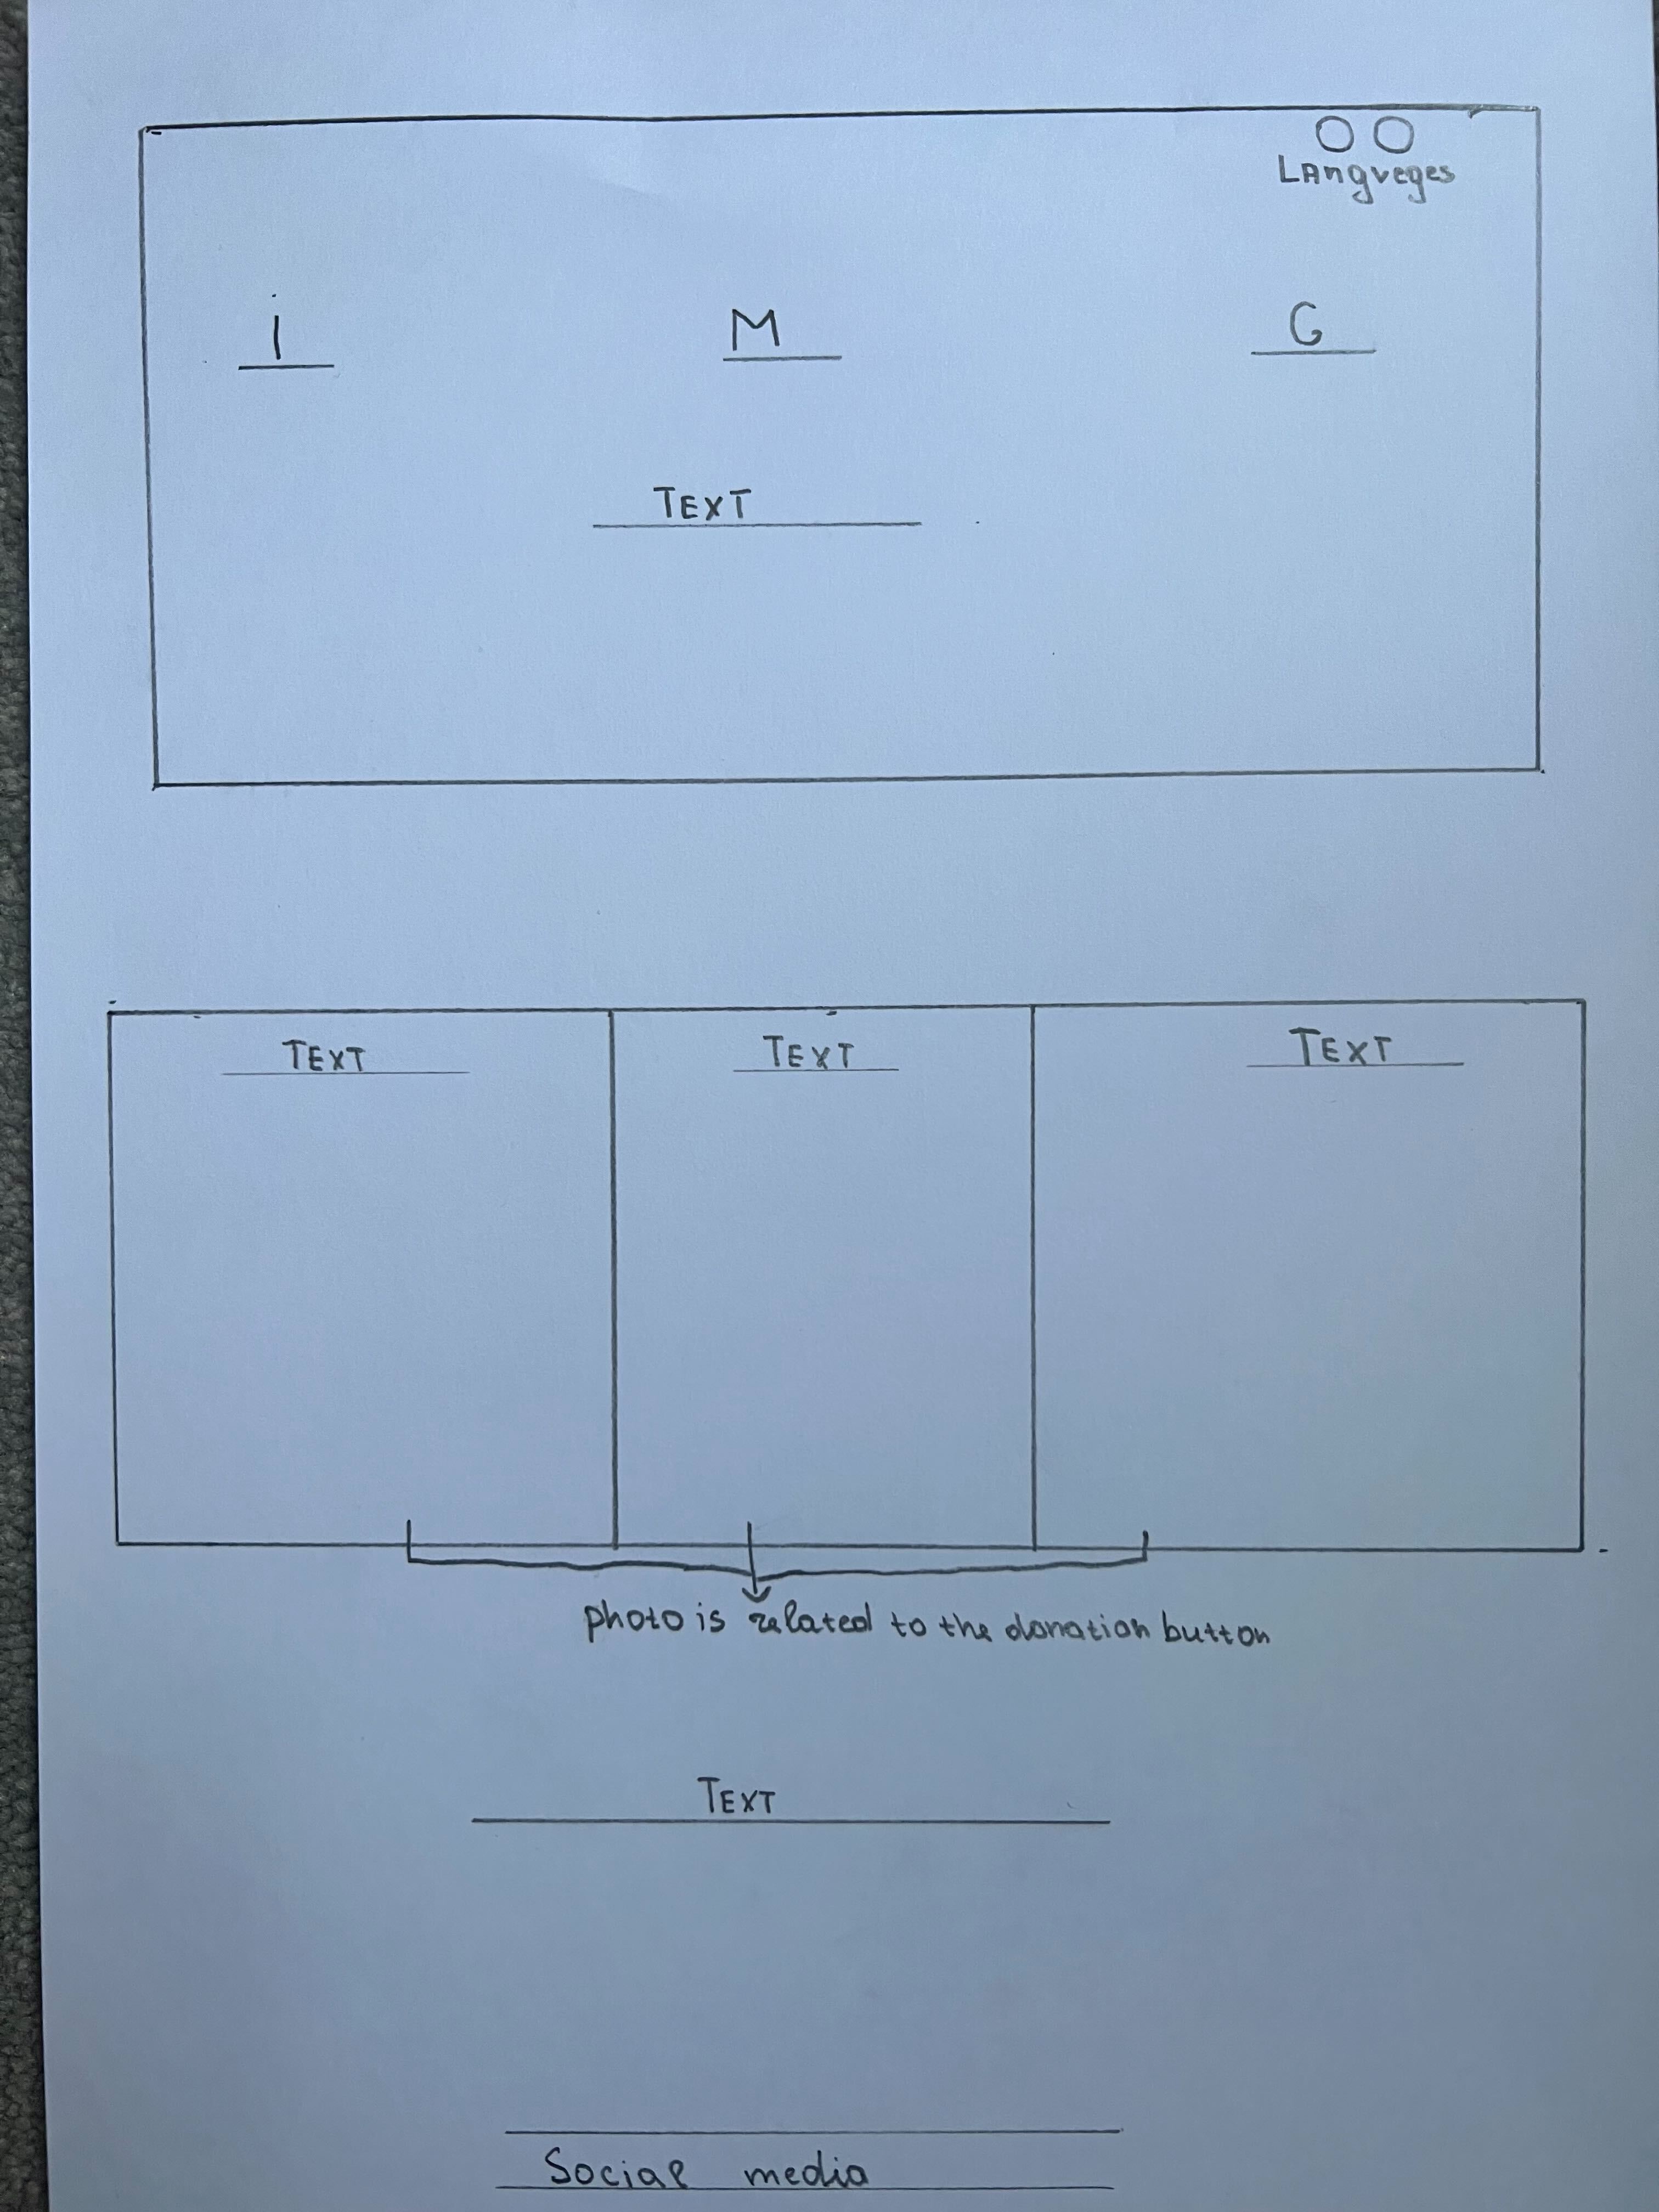 LAngveges
i M G
TEXT
TEXT TEXT TEXT
photo is related to the donation button
TEXT
Social media